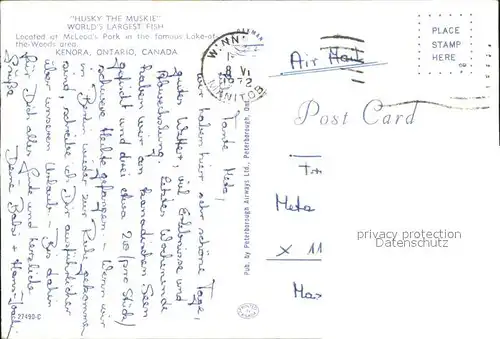 "HUSKY THE MUSKIE"
WORLD'S LARGEST FISH
Located at McLeod's Park in the famous Lake-of-
the-Woods area.
KENORA, ONTARIO, CANADA
Tante Meta,
wir haben hier sehr schöne Tage,
gutes Wetter, viel Erlebnisse und
Abwechslung. Letztes Wochenende
haben wir an kanadischen Seen
gefischt und drei etwa 20 (pro Stück)
schwere Hechte gefangen - Wenn wir
in Berlin wieder zur Ruhe gekommen
sind, schreibe ich Dir ausführlicher
über unseren Urlaub - Bis dahin
für Dich alles Gute und herzliche
Grüße Deine Babsi + Hans-Joach
27490-C
Pub. by Peterborough Airways Ltd., Peterborough, Ont.
WINNI
8 VI
1972
MANITOBA
Air Mail
PLACE
STAMP
HERE
Post Card
Meta
X 11
privacy protection
Datenschutz